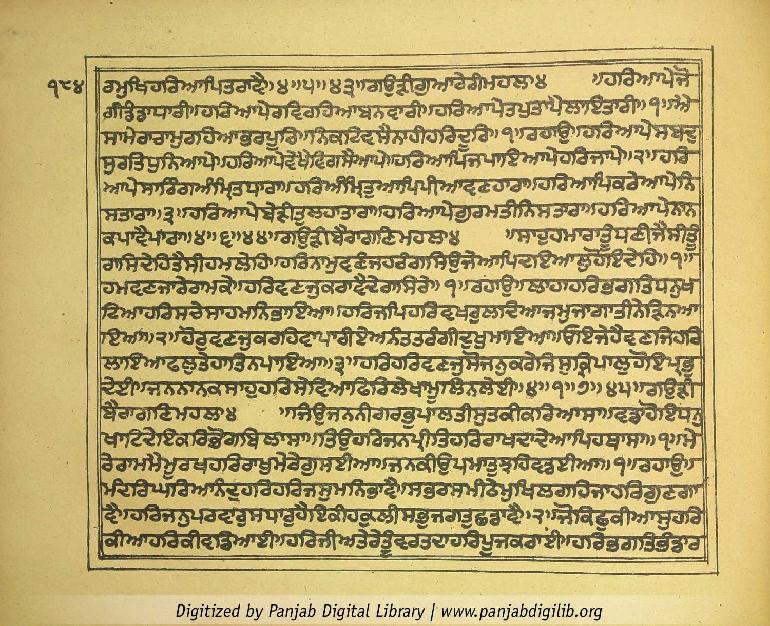 ੧੮੪ ਰਮੁਖਿਹਰਿਆਪਿਤਰਾਵੈ॥੪॥੫॥੪੩॥ਗਉੜੀਗੁਆਰੇਰੀਮਹਲਾ੪ ॥ਹਰਿਆਪੇਜੋ
ਗੀਡੰਡਾਧਾਰੀ॥ਹਰਿਆਪੇਰਵਿਰਹਿਆਬਨਵਾਰੀ॥ਹਰਿਆਪੇਤਪੁਤਾਪੈਲਾਇਤਾਰੀ॥੧॥ਐ
ਸਾਮੇਰਾਰਾਮੁਰਹਿਆਭਰਪੂਰਿ॥ਨਿਕਟਿਵਸੈਨਾਹੀਹਰਿਦੂਰਿ॥੧॥ਰਹਾਉ॥ਹਰਿਆਪੇਸਬਦੁ
ਸੁਰਤਿਧੁਨਿਆਪੇ॥ਹਰਿਆਪੇਵੇਖੈਵਿਗਸੈਆਪੇ॥ਹਰਿਆਪਿਜਪਾਇਆਪੇਹਰਿਜਾਪੇ॥੨॥ਹਰਿ
ਆਪੇਸਾਰਿੰਗਅੰਮ੍ਰਿਤਧਾਰਾ॥ਹਰਿਅੰਮ੍ਰਿਤੁਆਪਿਪੀਆਵਣਹਾਰਾ॥ਹਰਿਆਪਿਕਰੇਆਪੇਨਿ
ਸਤਾਰਾ॥੩॥ਹਰਿਆਪੇਬੇੜੀਤੁਲਹਾਤਾਰਾ॥ਹਰਿਆਪੇਗੁਰਮਤੀਨਿਸਤਾਰਾ॥ਹਰਿਆਪੇਨਾਨ
ਕਪਾਵੈਪਾਰਾ॥੪॥੬॥੪੪॥ਗਉੜੀਬੈਰਾਗਣਿਮਹਲਾ੪ ॥ਸਾਹੁਹਮਾਰਾਤੂੰਧਣੀਜੈਸੀਤੂੰ
ਰਾਸਿਦੇਹਿਤੈਸੀਹਮਲੇਹਿ॥ਹਰਿਨਾਮੁਵਣੰਜਹਰੰਗਸਿਉਜੇਆਪਿਦਇਆਲੁਹੋਇਦੇਹਿ॥੧॥
ਹਮਵਣਜਾਰੇਰਾਮਕੇ॥ਹਰਿਵਣਜੁਕਰਾਵੈਦੇਰਾਸਿਰੇ॥੧॥ਰਹਾਉ॥ਲਾਹਾਹਰਿਭਗਤਿਧਨੁਖ
ਟਿਆਹਰਿਸਚੇਸਾਹਮਨਿਭਾਇਆ॥ਹਰਿਜਪਿਹਰਿਵਖਰੁਲਦਿਆਜਮੁਜਾਗਾਤੀਨੇੜਿਨਆ
ਇਆ॥੨॥ਹੋਰੁਵਣਜੁਕਰਹਿਵਾਪਾਰੀਏਅਨੰਤਤਰੰਗੀਦੁਖੁਮਾਇਆ॥ਓਇਜੇਹੈਵਣਜਿਹਰਿ
ਲਾਇਆਫਲੁਤੇਹਾਤਿਨਪਾਇਆ॥੩॥ਹਰਿਹਰਿਵਣਜੁਸੋਜਨੁਕਰੇਜਿਸੁਕ੍ਰਿਪਾਲੁਹੋਇਪ੍ਰਭੁ
ਦੇਈ॥ਜਨਨਾਨਕਸਾਹੁਹਰਿਸੇਵਿਆਫਿਰਿਲੇਖਾਮੂਲਿਨਲੇਈ॥੪॥੧॥੭॥੪੫॥ਗਉੜੀ
ਬੈਰਾਗਣਿਮਹਲਾ੪ ॥ਜਿਉਜਨਨੀਗਰਭੁਪਾਲਤੀਸੁਤਕੀਕਰਿਆਸਾ॥ਵਡਾਹੋਇਧਨੁ
ਖਾਟਿਦੇਇਕਰਿਭੋਗਬਿਲਾਸਾ॥ਤਿਉਹਰਿਜਨਪ੍ਰੀਤਿਹਰਿਰਾਖਦਾਦੇਆਪਿਹਥਾਸਾ॥੧॥ਮੇ
ਰੇਰਾਮਮੈਮੂਰਖਹਰਿਰਾਖੁਮੇਰੇਗੁਸਈਆ॥ਜਨਕੀਉਪਮਾਤੁਝਹਿਵਡਈਆ॥੧॥ਰਹਾਉ॥
ਮੰਦਿਰਿਘਰਿਆਨੰਦੁਹਰਿਹਰਿਜਸੁਮਨਿਭਾਵੈ॥ਸਭਰਸਮੀਠੇਮੁਖਿਲਗਹਿਜਾਹਰਿਗੁਣਗਾ
ਵੈ॥ਹਰਿਜਨੁਪਰਵਾਰੁਸਧਾਰੁਹੈਇਕੀਹਕੁਲੀਸਭੁਜਗਤੁਛਡਾਵੈ॥੨॥ਜੋਕਿਛੁਕੀਆਸੁਹਰਿ
ਕੀਆਹਰਿਕੀਵਡਿਆਈ॥ਹਰਿਜੀਅਤੇਰੇਤੂੰਵਰਤਦਾਹਰਿਪੂਜਕਰਾਈ॥ਹਰਿਭਗਤਿਭੰਡਾਰ
Digitized by Panjab Digital Library | www.panjabdigilib.org